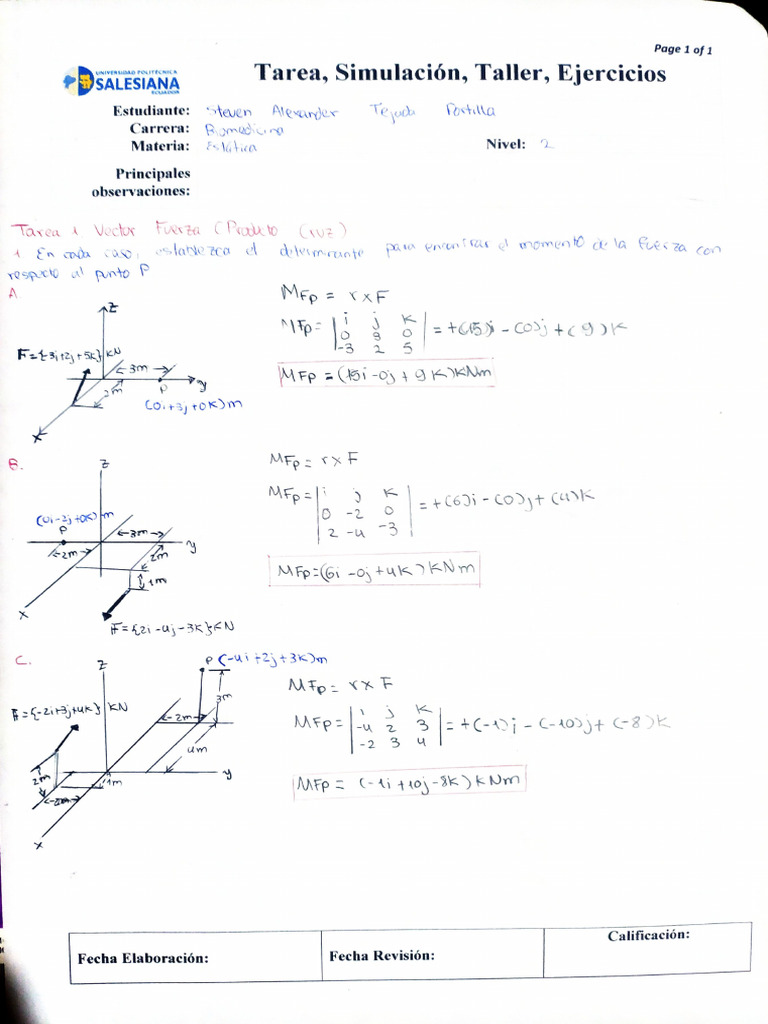 Page 1 of 1
UNIVERSIDAD POLITÉCNICA
SALESIANA
ECUADOR
Tarea, Simulación, Taller, Ejercicios
Estudiante: Steven Alexander Tejada Portilla
Carrera: Biomedicina
Materia: Estática
Nivel: 2
Principales
observaciones:
Tarea 1 Vector Fuerza (Producto Cruz)
1 En cada caso, establezca el determinante para encontrar el momento de la fuerza con
respecto al punto P
A.
z
F={-3i+2j+5k} kN
3m
y
2m
P
(0i+3j+0k)m
x
MFp = r x F
MFp = | i j k |
| 0 3 0 |
| -3 2 5 |
= +(15)i -(0)j +(9)k
MFp = (15i -0j + 9k) kNm
B.
z
(0i-2j+0k) m
P
3m
2m
y
2m
1m
x
F={2i-4j-3k} kN
MFp = r x F
MFp = | i j k |
| 0 -2 0 |
| 2 -4 -3 |
= +(6)i -(0)j +(4)k
MFp = (6i -0j +4k) kNm
C.
z
P (-4i+2j+3k)m
F={-2i+3j+4k} kN
3m
2m
4m
y
2m
1m
2m
x
MFp = r x F
MFp = | i j k |
| -4 2 3 |
| -2 3 4 |
= +(-1)i -(-10)j +(-8)k
MFp = (-1i +10j -8k) kNm
Fecha Elaboración:
Fecha Revisión:
Calificación: